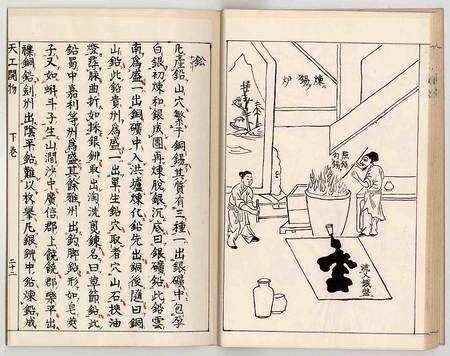 煉錫炉
點鉛
勾錫
流入鐵盤
鉛
凡產鉛山穴繁于銅錫其質有三種一出銀礦中包孕
白銀初煉和銀成團再煉脫銀沉底曰銀礦鉛此鉛雲
南為盛一出銅礦中入洪爐煉化鉛先出銅後隨曰銅
山鉛此鉛貴州為盛一出單生鉛穴取者穴山石挾油
燈尋脉曲折如採銀鉚取出淘洗煎鍊名曰草節鉛此
鉛蜀中嘉利等州為盛其餘雅州出釣脚鉛形如皂莢
子又如蝌斗子生山澗沙中廣信郡上饒饒郡樂平出
雜銅鉛劍州出陰平鉛難以枚舉凡銀鉚中鉛煉鉛成
天工開物 下卷 二十二